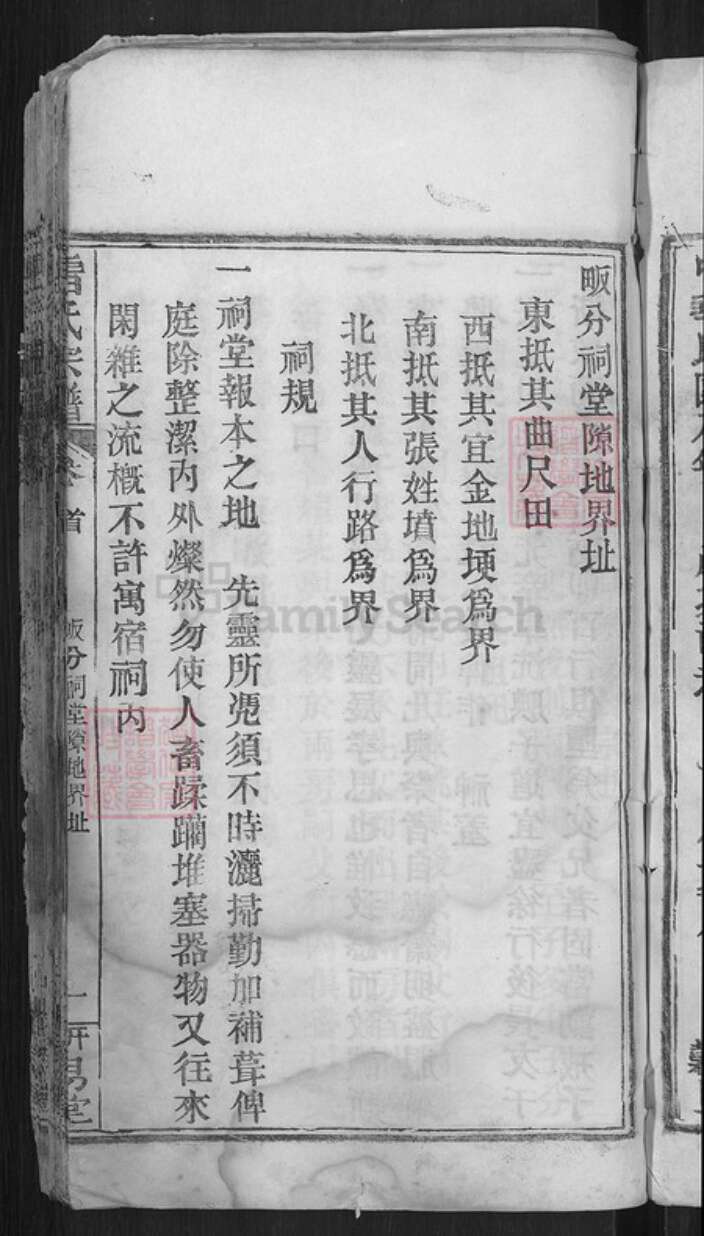 畈分祠堂隙地界址
東抵其曲尺田
西抵其宜金地埂爲界
南抵其張姓墳爲界
北抵其人行路爲界
祠規
一祠堂報本之地 先靈所凴須不時灑掃勤加補葺俾
庭除整潔内外燦然勿使人畜蹂躪堆塞器物又往來
閑雜之流概不許寓宿祠内
氏宗譜 卷首 畈分祠堂隙地界址 一
FamilySearch